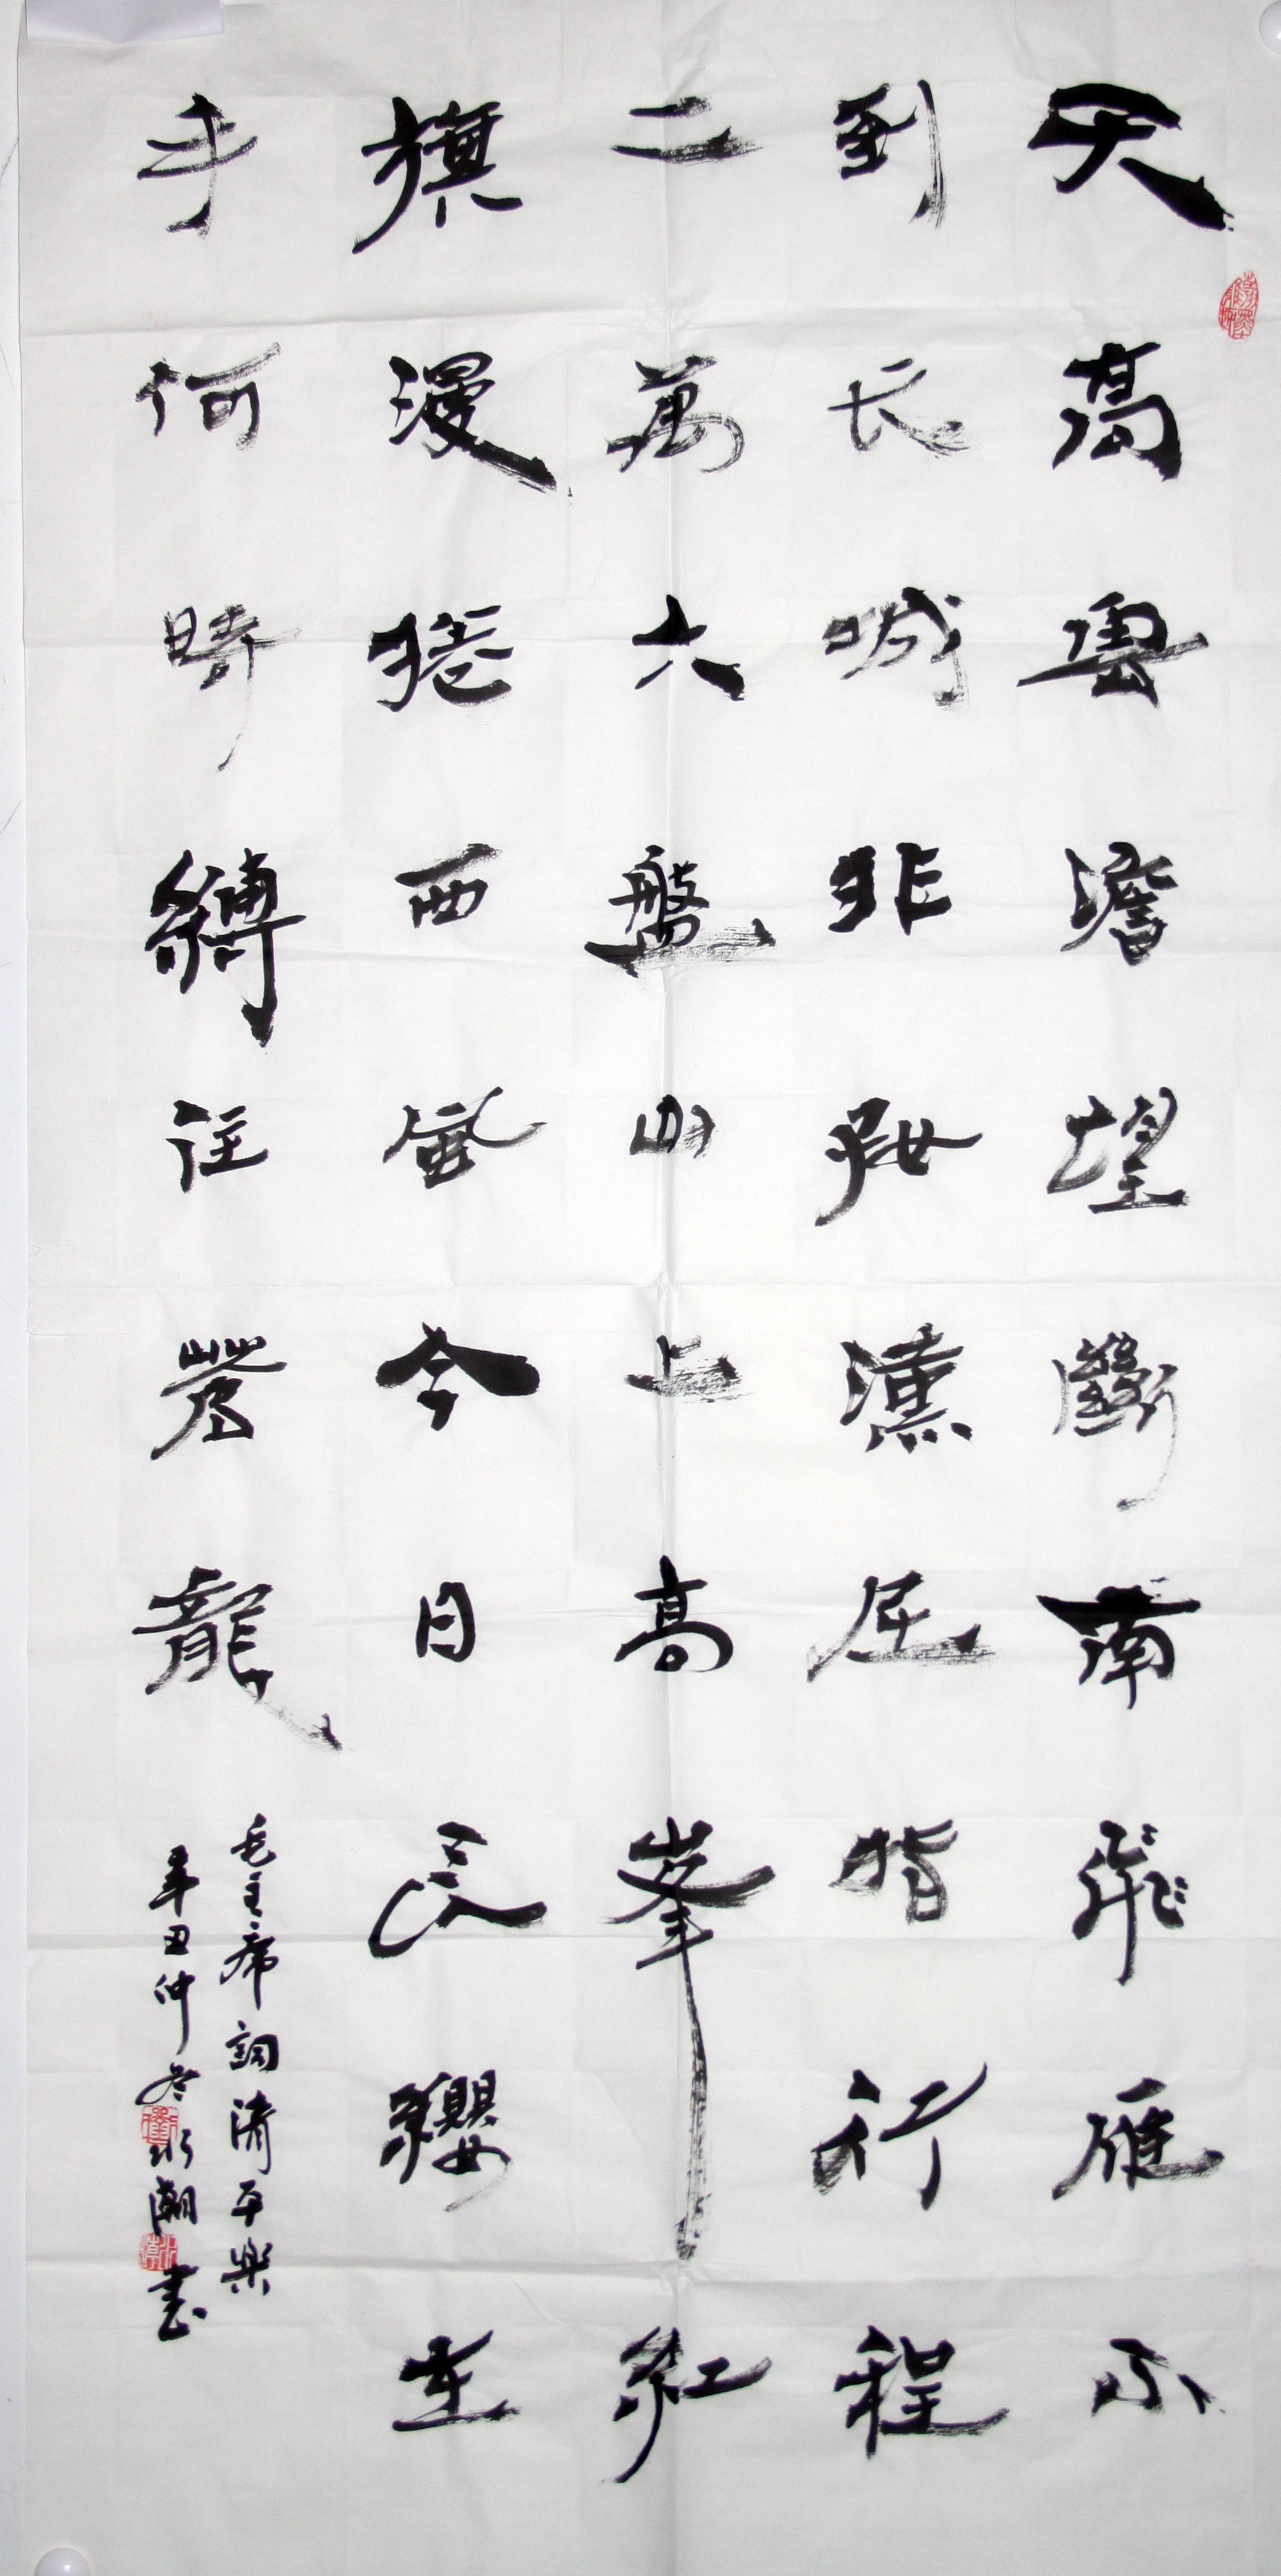 天高雲澹望斷南飛雁不
到长城非好漢屈指行程
二萬六盤山上高峯紅
旗漫捲西風今日長纓在
手何時縛住蒼龍
毛主席詞清平樂
辛丑仲冬潮書